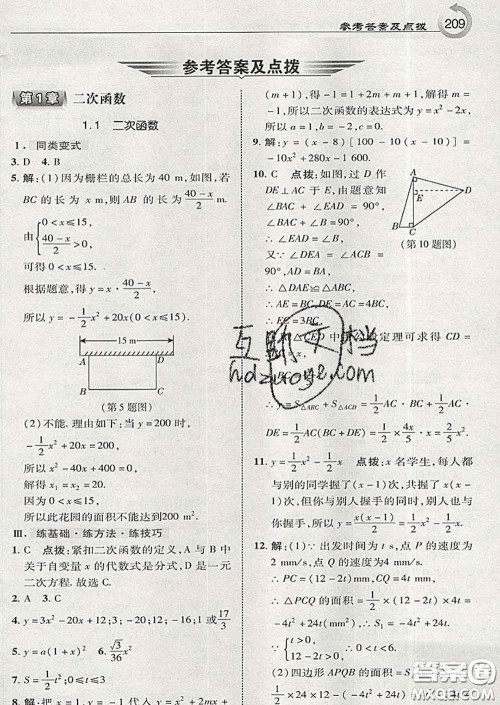 参考答案及点拨 209
参考答案及点拨
第1章 二次函数
1.1 二次函数
1. 同类变式
3. D 4. B
5. 解:(1)因为栅栏的总长为 40 m,若
BC 的长为 x m,则 AB 的长为
(40-x)/2 m.
由{0<x≤15, (40-x)/2>0,
可得 0<x≤15.
根据题意,得 y=x·(40-x)/2,
所以 y=-1/2x²+20x(0<x≤15).
15 m
A D
B C
(第5题图)
(2)不能. 理由如下:当 y=200 时,
-1/2x²+20x=200,
所以 x²-40x+400=0.
解得 x₁=x₂=20.
因为 0<x≤15,
所以此花园的面积不能达到 200 m².
Ⅲ. 练基础·练方法·练技巧
1. C 点拨:紧扣二次函数的定义,A 与 B 中
关于自变量 x 的代数式是分式,D 是一元
二次方程. 故选 C.
2. A 3. C
4. y=x²-20x+12;3;-20;12;-5 或 17/3
5. y=a(1+x)² 6. √3/36 x²
7. S=-1/2t²+4t;0≤t≤4
8. 解:把 x=1,y=-1 代入 y=ax²+
(m+1),得-1=(m²-2m)+(m+
-1,所以二次函数的表达式为 y=x²-2x,
所以 a=1,b=-2.
9. 解:y=(x-8)[100-10(x-10)]=
-10x²+280x-1600.
10. C 点拨:如图,过 D 作
DE⊥AC 于 E,由题意知
∠BAC+∠CAD=90°,
∠BAC+∠ABC=90°
∴∠EAD=∠ABC.
又∵∠DEA=∠ACB=
90°,AB=AD,
∴△DAE≌△ABC,
∴AE=BC,DE=AC=4BC,
∴CE=3BC.
A
D
E
B C
(第10题图)
∴S=S△ABC+S△ACD=1/2AC·BC+
1/2AC·DE=1/2×4x/5·x/5+1/2×4x/5·
4x/5=2/5x².
11. y=1/2x²-1/2x 点拨:x 名学生,每人都
与别的同学握了(x-1)次,共握了
x(x-1)次,但你与别人握手和别人与你
握手是同一次,∴y=x(x-1)/2.
12. 解:(1)∵出发时间为 t,点 P 的速度为
2 mm/s,点 Q 的速度为4 mm/s,
∴PB=12-2t,BQ=4t,
∴△PBQ 的面积=1/2×(12-2t)×4t=
-4t²+24t(mm²),即 S₁=-4t²+24t.
∵{t>0, 12-2t>0, ∴0<t<6.
(2)四边形 APQB 的面积=1/2×12×
24-(-4t²+24t)=4t²-24t+
互助文本当
hdzuoye.com
答案圈
MXQE.COM